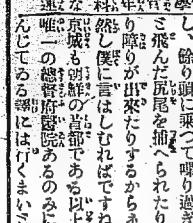 し、餘り頭に乘つて喋り過
ぎ飛んだ尻尾を捕へられたり
り障りが出來たりするからネ
然し僕に言はしむればですね
な京城も朝鮮の首都である以上
唯一の總督府醫院あるのみに
んじてゐる譯には行くまい